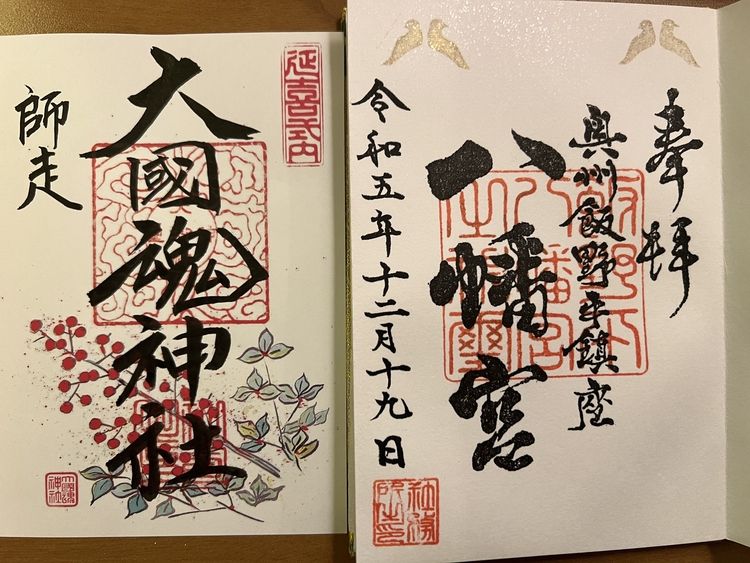 奉拝
奥州飯野平鎮座
八幡宮
令和五年十二月十九日
社務所之印
延喜式内
大國魂神社
師走